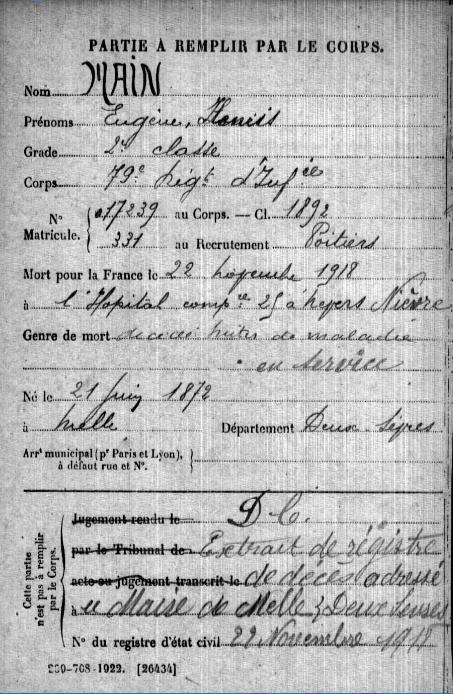 PARTIE À REMPLIR PAR LE CORPS.
Nom MAIN
Prénoms Eugène,
Grade 2e classe
Corps 79e Régt d'Infie
N° Matricule. 17239 au Corps. — Cl. 1892
331 au Recrutement Poitiers
Mort pour la France le 22 novembre 1918
à l'Hopital compre 25 à Nevers Nièvre
Genre de mort décédé suites de maladie
en service
Né le 21 Juin 1872
à Melle Département Deux Sèvres
Arrt municipal (pr Paris et Lyon),
à défaut rue et N°.
Cette partie n'est pas à remplir par le Corps.
Jugement rendu le D C.
par le Tribunal de Extrait de régistre
acte ou jugement transcrit le de décès adressé
à Maire de Melle Deux Sevres
N° du registre d'état civil 22 Novembre 1918
260-708-1922. [26434]